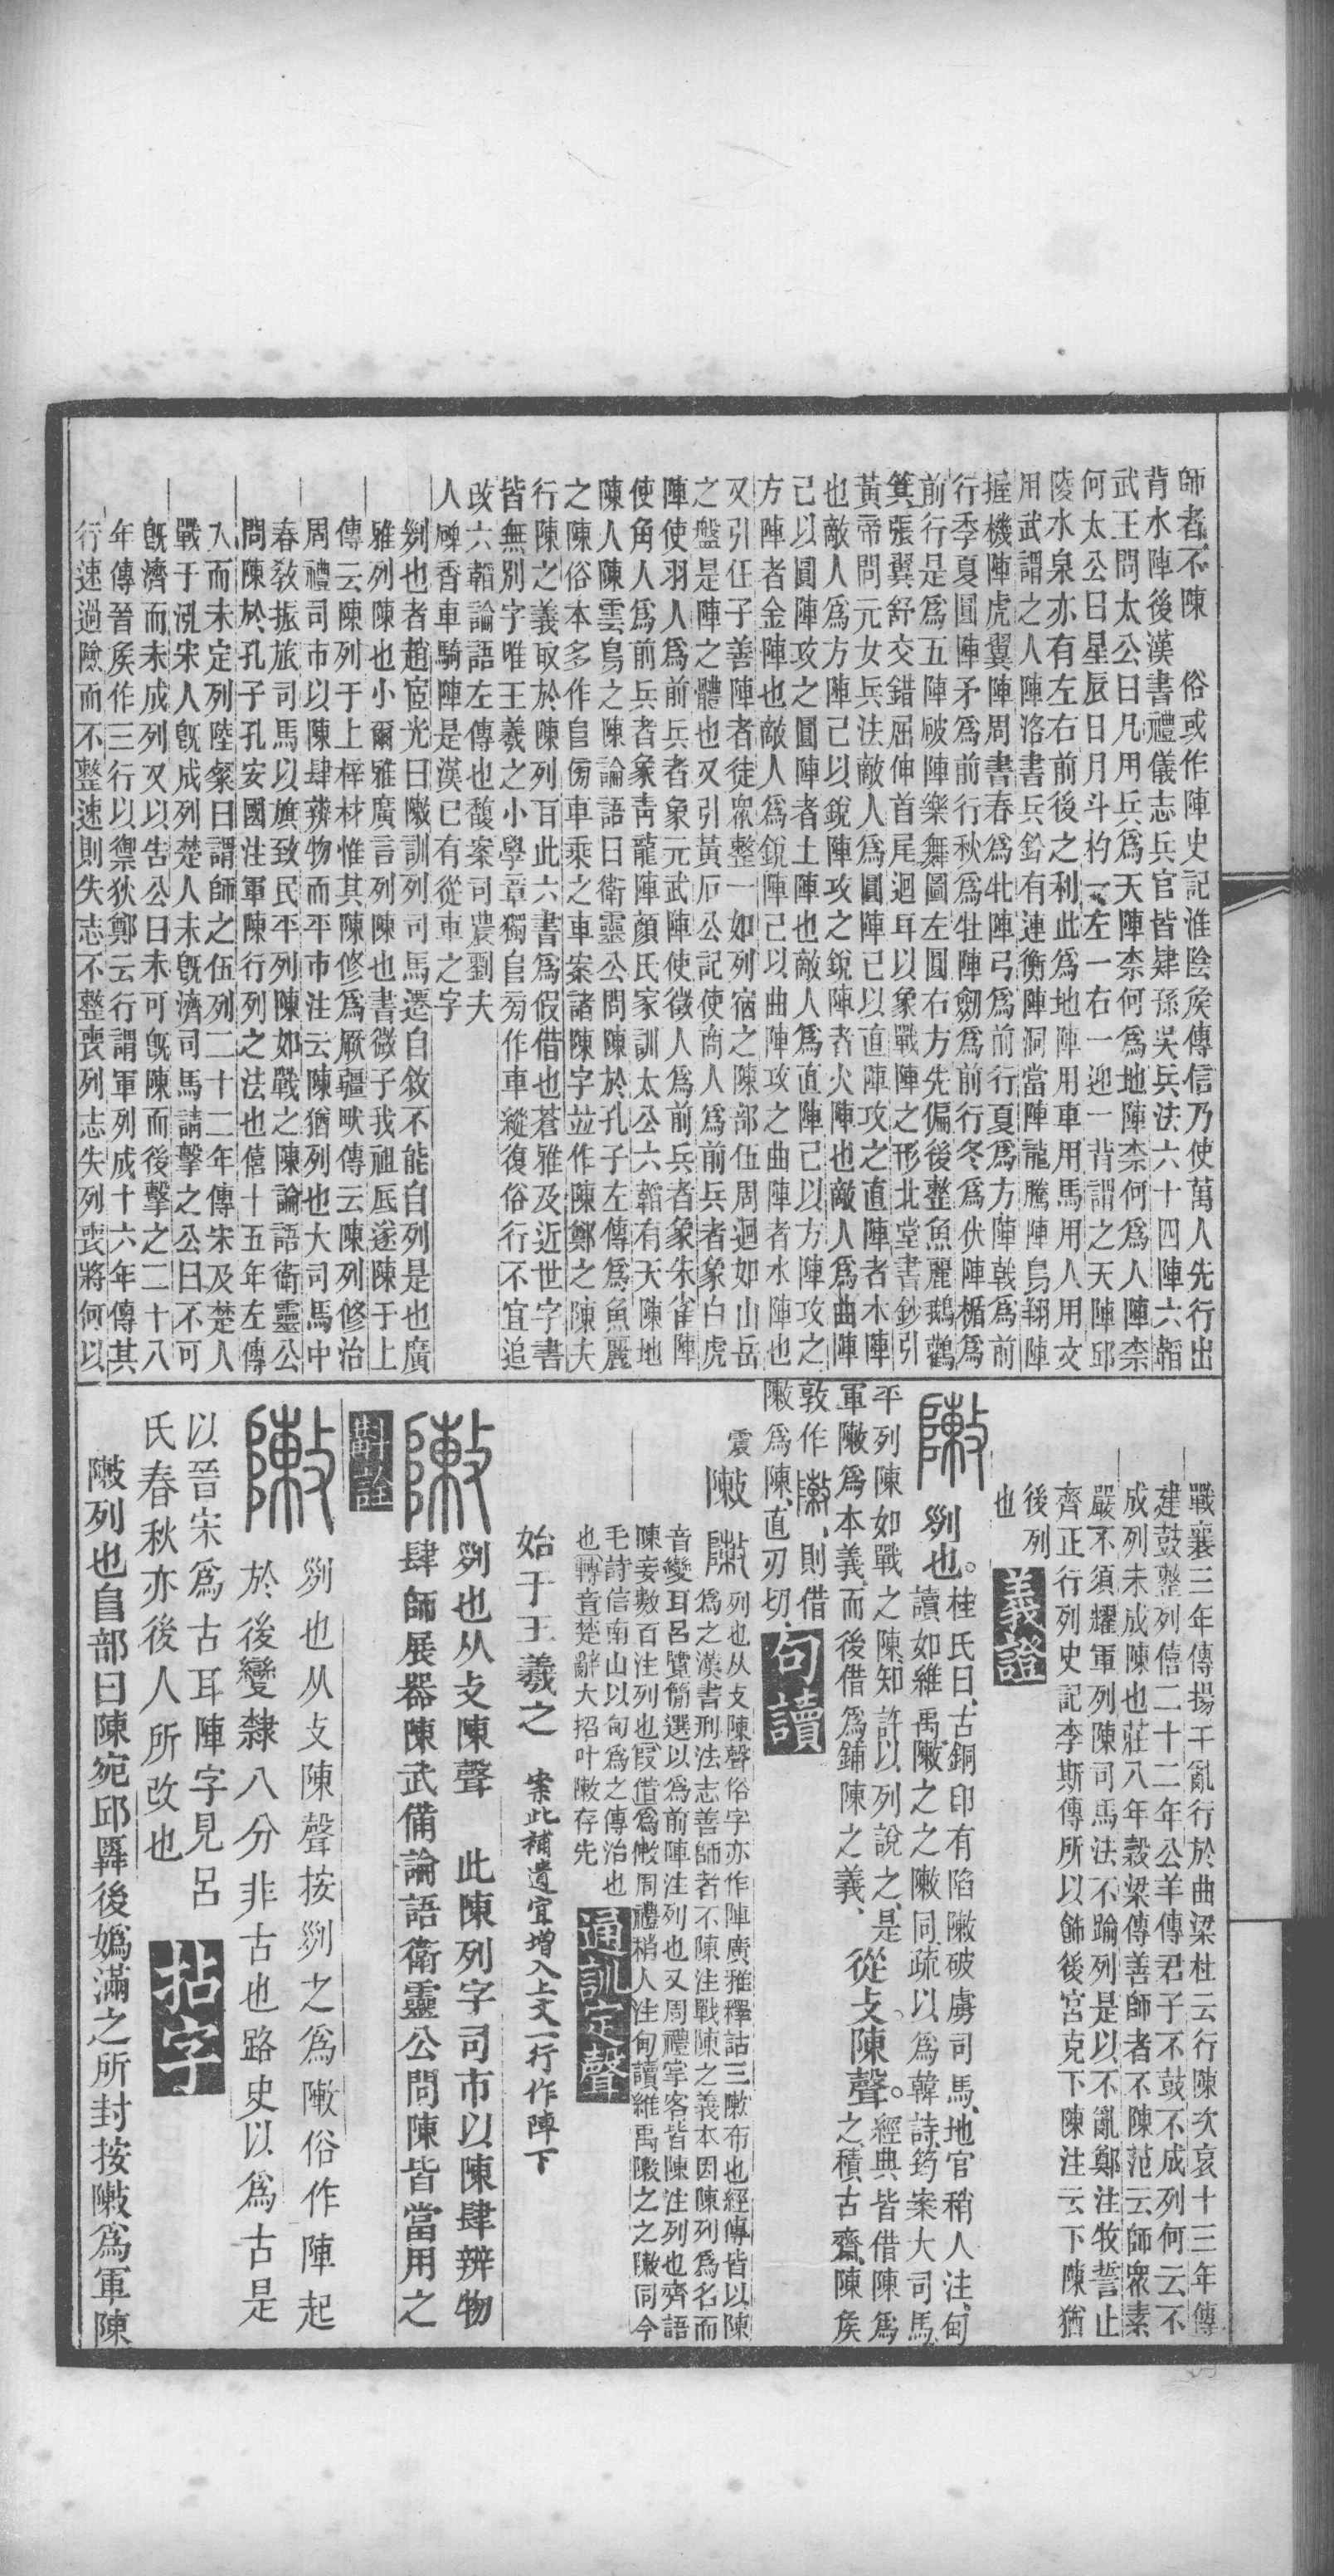 師者不陳　俗或作陣史記淮陰矦傳信乃使萬人先行出
背水陣後漢書禮儀志兵官皆肄孫吳兵法六十四陣六韜
武王問太公曰凡用兵爲天陣柰何爲地陣柰何爲人陣柰
何太公曰星辰日月斗杓一左一右一迎一背謂之天陣邱
陵水泉亦有左右前後之利此爲地陣用車用馬用人用文
用武謂之人陣洛書兵鈐有連衡陣洞當陣龍騰陣鳥翔陣
握機陣虎翼陣周書春爲牝陣弓爲前行夏爲方陣戟爲前
行季夏圓陣矛爲前行秋爲牡陣劒爲前行冬爲伏陣楯爲
前行是爲五陣破陣樂舞圖左圓右方先偏後整魚麗鵝鸛
箕張翼舒交錯屈伸首尾迴耳以象戰陣之形北堂書鈔引
黃帝問元女兵法敵人爲圓陣己以直陣攻之直陣者木陣
也敵人爲方陣己以銳陣攻之銳陣者火陣也敵人爲曲陣
己以圓陣攻之圓陣者土陣也敵人爲直陣己以方陣攻之
方陣者金陣也敵人爲銳陣己以曲陣攻之曲陣者水陣也
又引任子善陣者徒眾整一如列宿之陳部伍周迴如山岳
之盤是陣之體也又引黃石公記使商人爲前兵者象白虎
陣使羽人爲前兵者象元武陣使徵人爲前兵者象朱雀陣
使角人爲前兵者象靑龍陣顏氏家訓太公六韜有天陳地
陳人陳雲鳥之陳論語曰衛靈公問陳於孔子左傳爲魚麗
之陳俗本多作自傍車乘之車案諸陳字並作陳鄭之陳夫
行陳之義取於陳列百此六書爲假借也蒼雅及近世字書
皆無別字唯王羲之小學章獨自旁作車縱復俗行不宜追
改六韜論語左傳也馥案司農劉夫
人碑香車騎陣是漢已有從車之字
𠛱也者趙宧光曰敶訓列司馬遷自敘不能自列是也廣
雅列陳也小爾雅廣言列陳也書微子我祖厎遂陳于上
傳云陳列于上梓材惟其陳修爲厥疆畎傳云陳列修治
周禮司市以陳肆辨物而平市注云陳猶列也大司馬中
春敎振旅司馬以旗致民平列陳如戰之陳論語衛靈公
問陳於孔子孔安國注軍陳行列之法也僖十五年左傳
入而未定列陸粲曰謂師之伍列二十二年傳宋及楚人
戰于泓宋人旣成列楚人未旣濟司馬請擊之公曰不可
旣濟而未成列又以吿公曰未可旣陳而後擊之二十八
年傳晉矦作三行以禦狄鄭云行謂軍列成十六年傳其
行速過險而不整速則失志不整喪列志失列喪將何以
戰襄三年傳揚干亂行於曲梁杜云行陳次哀十三年傳
建鼓整列僖二十二年公羊傳君子不鼓不成列何云不
成列未成陳也莊八年穀梁傳善師者不陳范云師眾素
嚴不須耀軍列陳司馬法不踰列是以不亂鄭注牧誓止
齊正行列史記李斯傳所以飾後宮充下陳注云下陳猶
後列
也 義證
敶 𠛱也。桂氏曰、古銅印有陷敶破虜司馬、地官稍人注、甸
讀如維禹敶之之敶同、疏以爲韓詩、筠案大司馬、
平列陳如戰之陳、知許以列說之、是 從攴陳聲。經典皆借陳爲
軍敶爲本義、而後借爲鋪陳之義、 之、積古齋、陳矦
敦作敶、則借
敶爲陳、直刃切、 句讀
震 敶 敶 列也从攴陳聲俗字亦作陣廣雅釋詁三敶布也經傳皆以陳
爲之漢書刑法志善師者不陳注戰陳之義本因陳列爲名而
音變耳呂覽簡選以爲前陣注列也又周禮掌客皆陳注列也齊語
陳妾數百注列也假借爲敶周禮稍人注甸讀維禹敶之之敶同今
毛詩信南山以甸爲之傳治也
也轉音楚辭大招叶敶存先 通訓定聲
始于王羲之 案此補遺宜增入上文一行作陣下
敶 𠛱也从攴陳聲　此陳列字司市以陳肆辨物
肆師展器陳武備論語衛靈公問陳皆當用之
斠詮
敶 𠛱也从攴陳聲按𠛱之爲敶俗作陣起
於後變隸八分非古也路史以爲古是
以晉宋爲古耳陣字見呂
氏春秋亦後人所改也 拈字
敶列也𨸏部曰陳宛邱舜後嬀滿之所封按敶爲軍陳